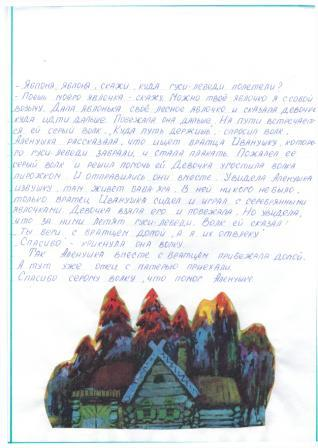 - Яблоня, яблоня, скажи, куда гуси-лебеди полетели?
- Поешь моего яблочка - скажу. Можно твоё яблочко я с собой
возьму. Дала яблонька своё лесное яблочко и сказала девочке
куда идти дальше. Побежала она дальше. На пути встречает-
ся ей серый волк. „Куда путь держишь" спросил волк.
Алёнушка рассказала, что ищет братца Иванушку, которо-
го гуси-лебеди забрали, и стала плакать. Пожалел её
серый волк и решил помочь ей. Девочка угостила волка
пирожком. И отправились они вместе. Увидела Алёнушка
избушку, там живёт баба яга. В ней никого не было,
только братец Иванушка сидел и играл с серебряными
яблочками. Девочка взяла его и побежала. Но увидела,
что за ними летят гуси-лебеди. Волк ей сказал:
„Ты беги с братцем домой, а я их отвлеку"
„Спасибо" - крикнула она волку.
Так Алёнушка вместе с братцем прибежала домой.
А тут уже отец с матерью приехали.
Спасибо серому волку, что помог Алёнушке.